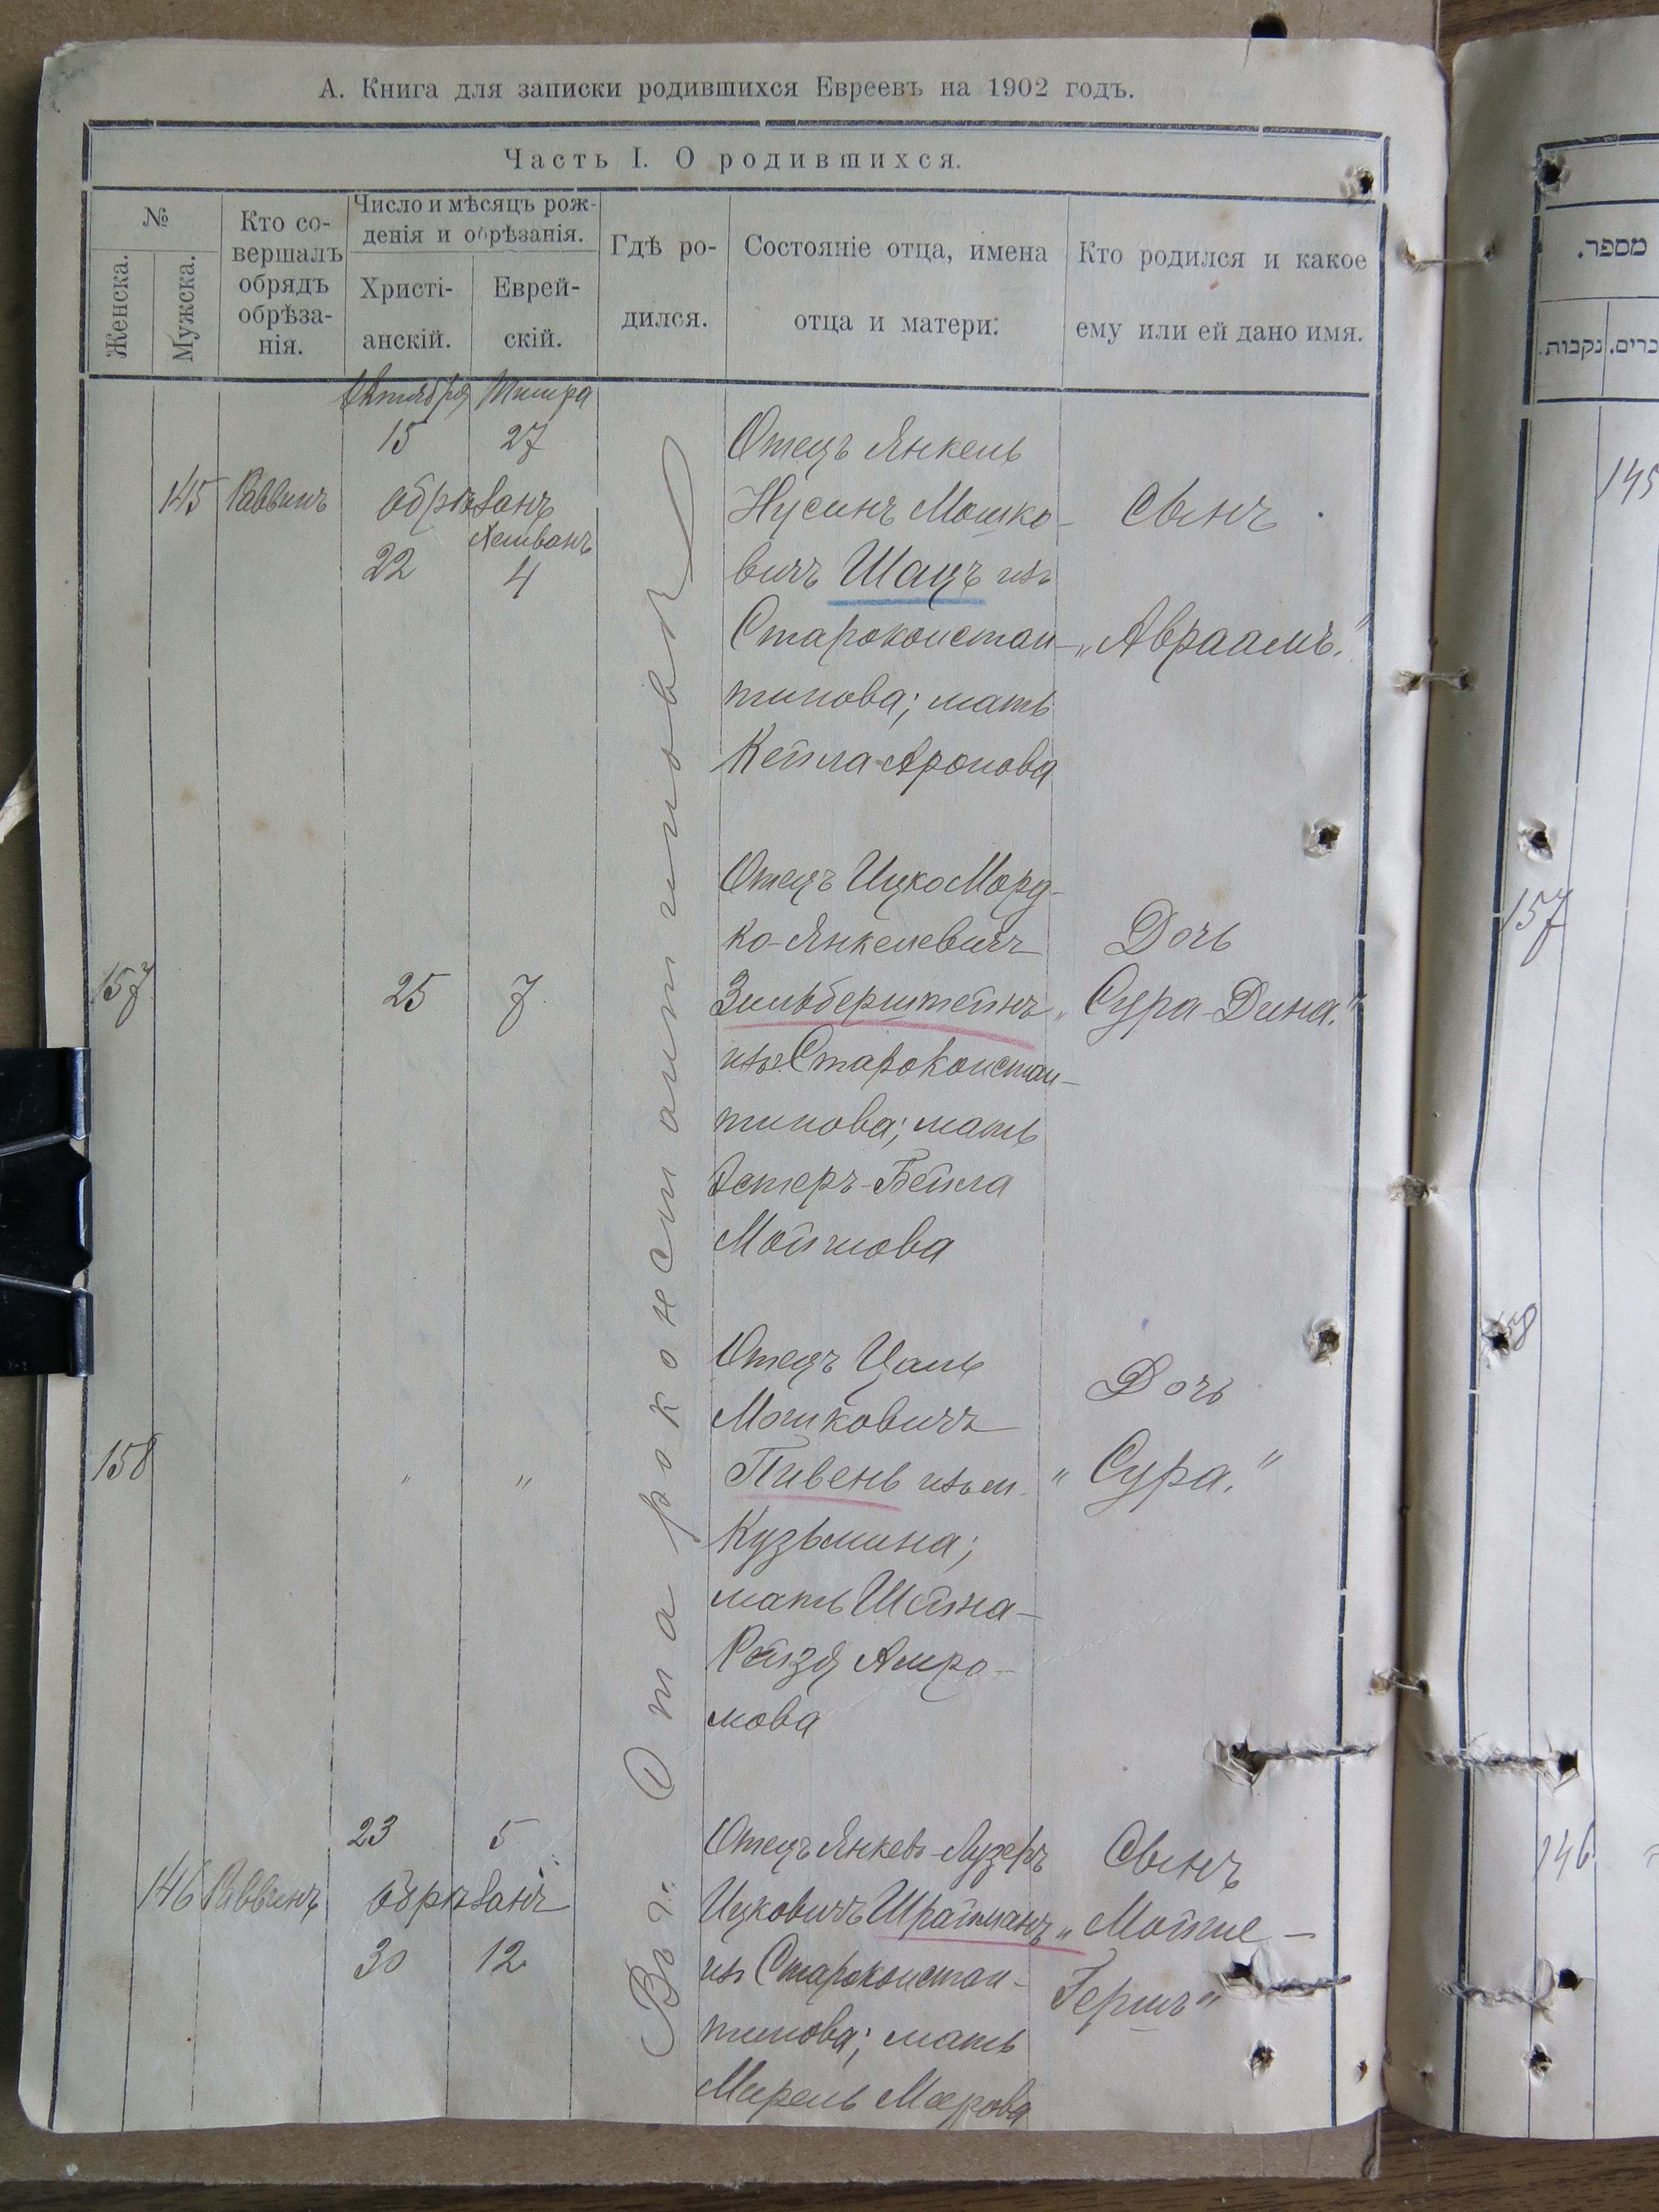 А. Книга для записки родившихся Евреевъ на 1902 годъ.
Часть I. О родившихся.
№
Женска.
Мужска.
Кто со-
вершалъ
обрядъ
обрѣза-
нія.
Число и мѣсяцъ рож-
денія и обрѣзанія.
Христі-
анскій.
Еврей-
скій.
Гдѣ ро-
дился.
Состояніе отца, имена
отца и матери:
Кто родился и какое
ему или ей дано имя.
Октября Тишра
15 27
145 Раввинъ обрѣзанъ
Хешванъ
22 4
Въ г. Староконстантиновѣ
Отецъ Янкель
Нусинъ Мошко-
вичъ Шацъ изъ
Староконстан-
тинова; мать
Кейла Аронова
Сынъ
„Авраамъ."
157 25 7
Отецъ Ицко Морд-
ко-Янкелевичъ
Зильберштейнъ
изъ Староконстан-
тинова; мать
Эстеръ-Бейла
Мойшова
Дочь
„Сура-Дина."
158 " "
Отецъ Цаль
Мошковичъ
Пивень изъ м.
Кузьмина;
мать Шейна-
Рейзя Амра-
мова
Дочь
"Сура."
23 5
146 Раввинъ обрѣзанъ
30 12
Отецъ Янкевъ-Лузеръ
Ицковичъ Шрайманъ
изъ Староконстан-
тинова; мать
Мирель Меерова
Сынъ
„Мойше-
Гершъ"
מספר.
נקבות.
זכרים.
145
157
158
146